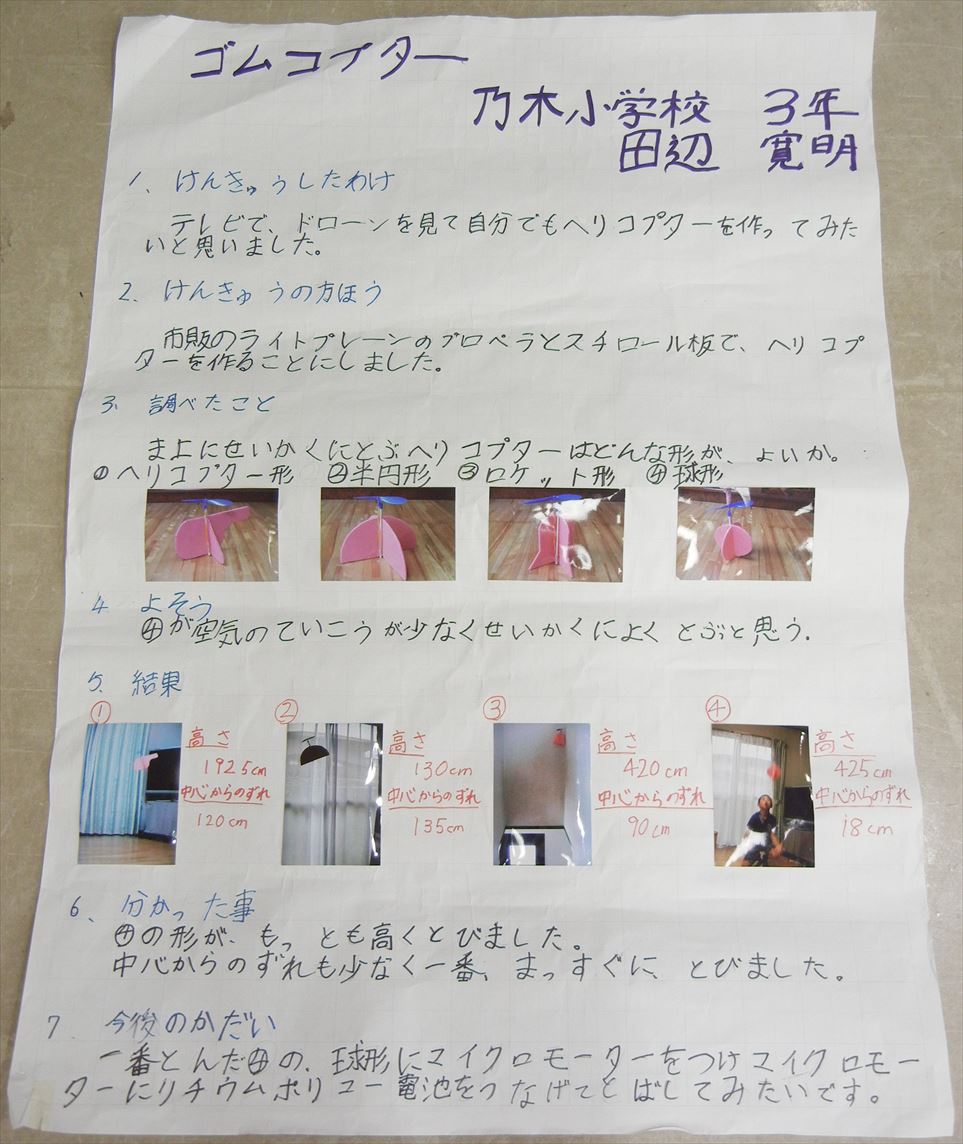 ゴムコプター
乃木小学校 3年
田辺 寛明
1、けんきゅうしたわけ
テレビで、ドローンを見て自分でもヘリコプターを作ってみた
いと思いました。
2、けんきゅうの方ほう
市販のライトプレーンのプロペラとスチロール板で、ヘリコプ
ターを作ることにしました。
3、調べたこと
ま上にせいかくにとぶヘリコプターはどんな形が、よいか。
①ヘリコプター形 ②半円形 ③ロケット形 ④球形
4 よそう
④が空気のていこうが少なくせいかくによくとぶと思う.
5. 結果
① ② ③ ④
高さ 高さ 高さ 高さ
192.5cm 130cm 420cm 425cm
中心からのずれ 中心からのずれ 中心からのずれ 中心からのずれ
120cm 135cm 90cm 18cm
6、分かった事
④の形が、もっとも高くとびました。
中心からのずれも少なく一番、まっすぐに、とびました。
7 今後のかだい
一番とんだ④の、球形にマイクロモーターをつけマイクロモー
ターにリチウムポリュー電池をつなげてとばしてみたいです。